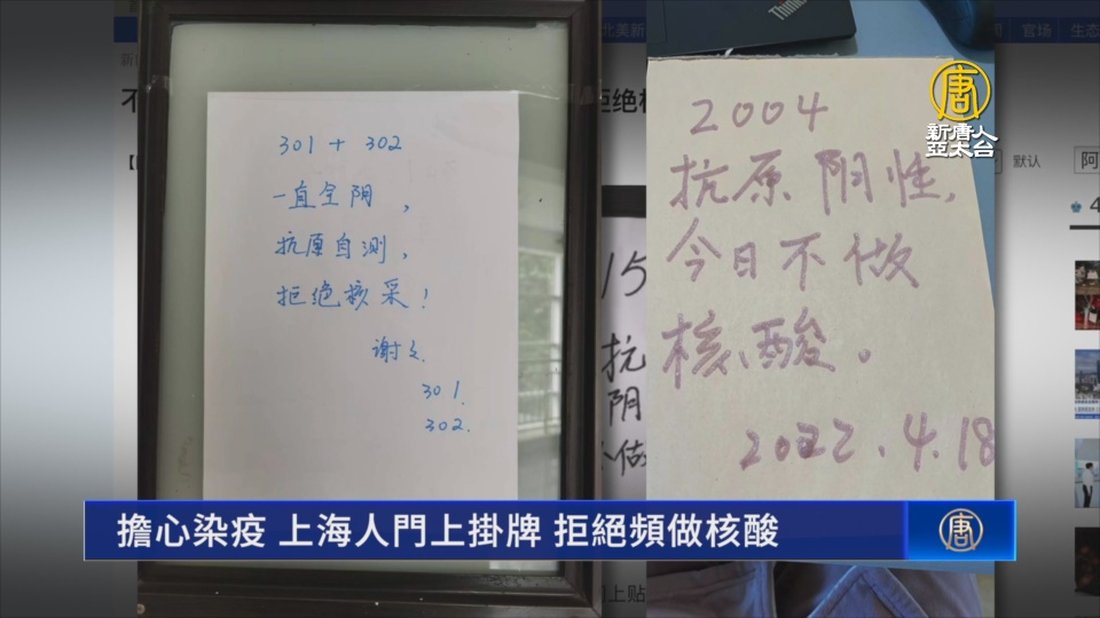 北美新
官场
生态
ThinkP
唐
新唐人
亞太台
默认
阿
301 + 302
一直全阴，
抗原自测，
拒绝核采！
谢谢.
301.
302.
15
抗
阴
做
2004
抗原阴性,
今日不做
核酸。
2022.4.18
擔心染疫 上海人門上掛牌 拒絕頻做核酸
唐
上贴